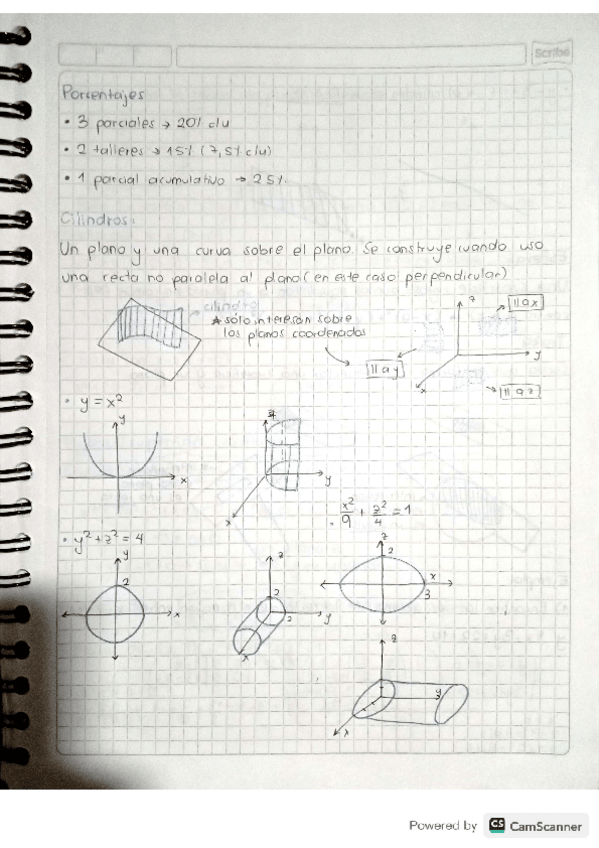 Scribe
Porcentajes
• 3 parciales → 20% c/u
• 2 talleres → 15% (7,5% c/u)
• 1 parcial acumulativo → 25%.
Cilindros:
Un plano y una curva sobre el plano. Se construye cuando uso
una recta no paralela al plano (en este caso perpendicular)
cilindro
★ sólo interesan sobre
los planos coordenados
z
|| a x
y
|| a y
x
|| a z
• y = x²
y
x
z
y
x
• y² + z² = 4
y
2
x
z
2
2
y
x
• x²/9 + z²/4 = 1
z
2
x
3
z
y
x
Powered by CS CamScanner